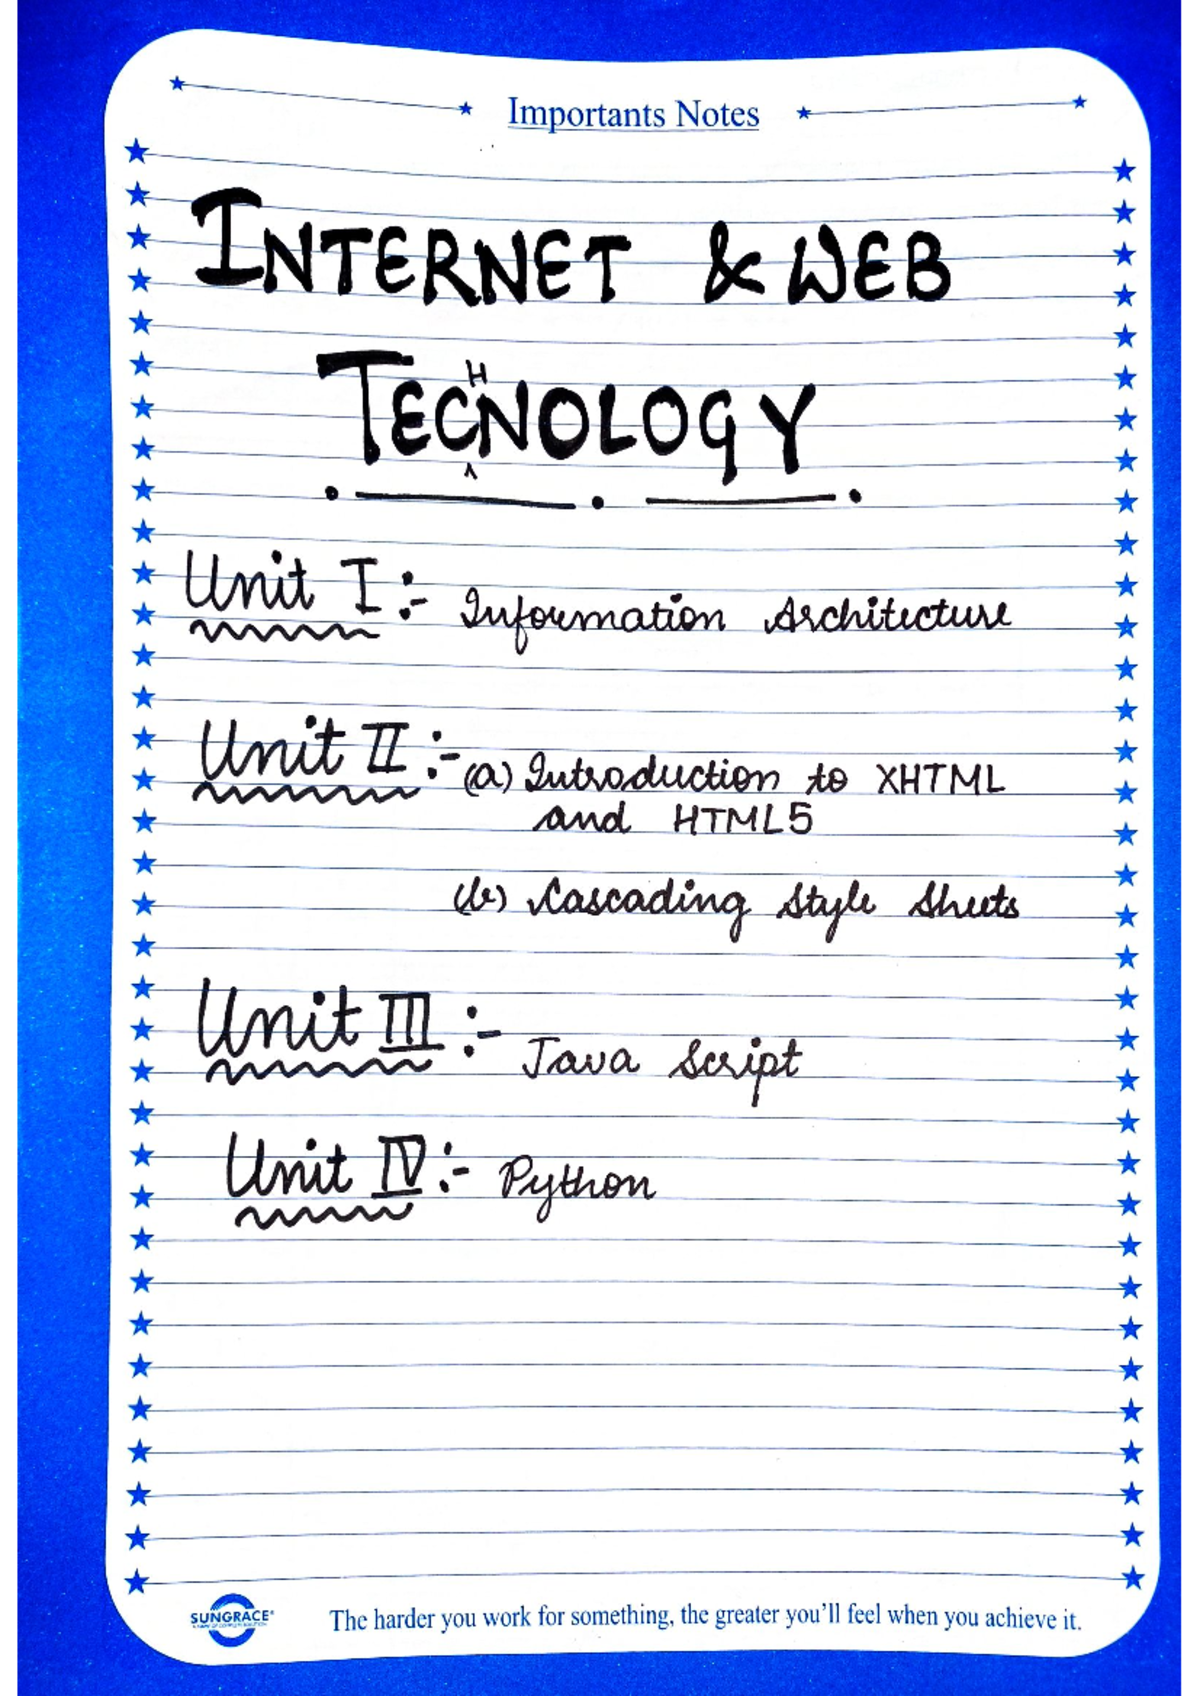 Importants Notes
INTERNET & WEB
TECHNOLOGY
Unit I :- Information Architecture
Unit II :- (a) Introduction to XHTML
and HTML5
(b) Cascading Style Sheets
Unit III :- Java Script
Unit IV :- Python
SUNGRACE
The harder you work for something, the greater you'll feel when you achieve it.